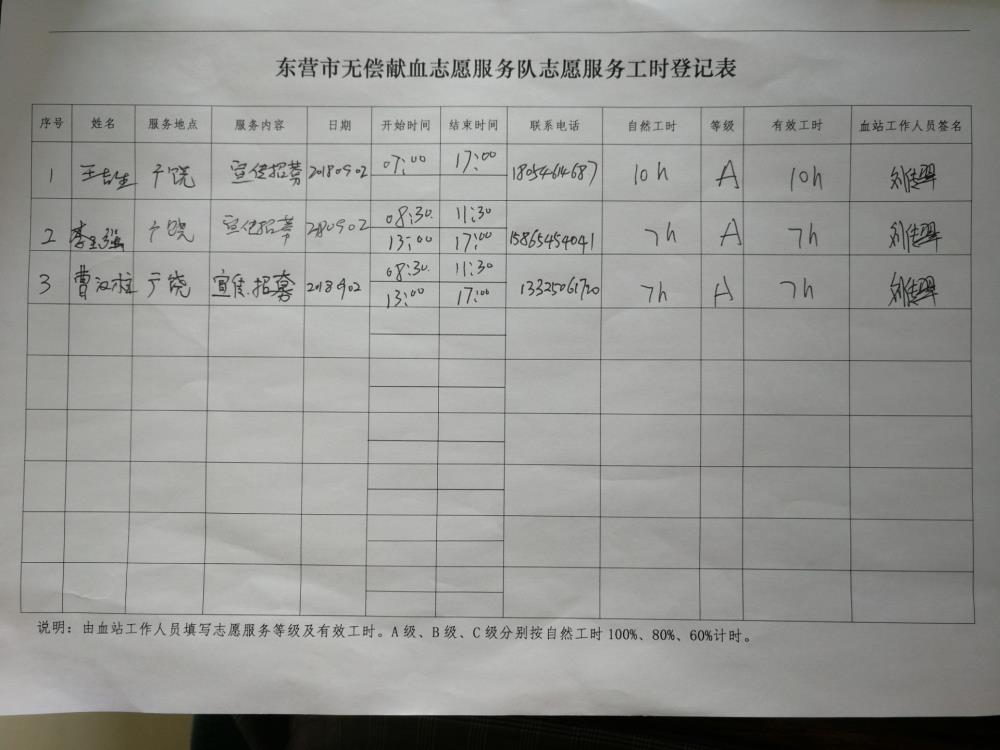 东营市无偿献血志愿服务队志愿服务工时登记表
序号 姓名 服务地点 服务内容 日期 开始时间 结束时间 联系电话 自然工时 等级 有效工时 血站工作人员签名
1 王吉生 广饶 宣传招募 20180902 07:00 17:00 18054614687 10h A 10h
2 李 强 广饶 宣传招募 2180902 08:30 11:30 15865454041 7h A 7h
13:00 17:00
3 曹汉柱 广饶 宣传招募 2018902 08:30 11:30 13325061720 7h A 7h
13:00 17:00
说明：由血站工作人员填写志愿服务等级及有效工时。A级、B级、C级分别按自然工时100%、80%、60%计时。